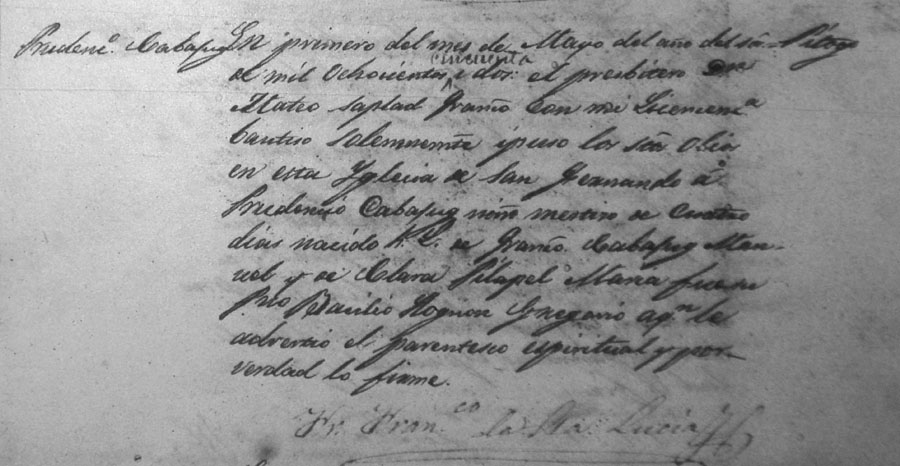 Prudenº. Cabahug En primero del mes de Mayo del año del Sôr. Pitogo
de mil Ochocientos cincuenta i dos: el presbitero Dn.
Mateo con mi Licencia
bautiso solemnemte. ipuso los Stôs Olios
en esta Yglecia de San Fernando á
Prudencio Cabahug niño mestiso de cuatro
dias nacido h. L. de Cabahug Man-
uel y de Clara Pilapel Maria fue su
Pno Basilio Gregorio aqn. le
advertio el parentesco espiritual y por-
verdad lo firme.
Fr. Franco. de Sta. Lucia